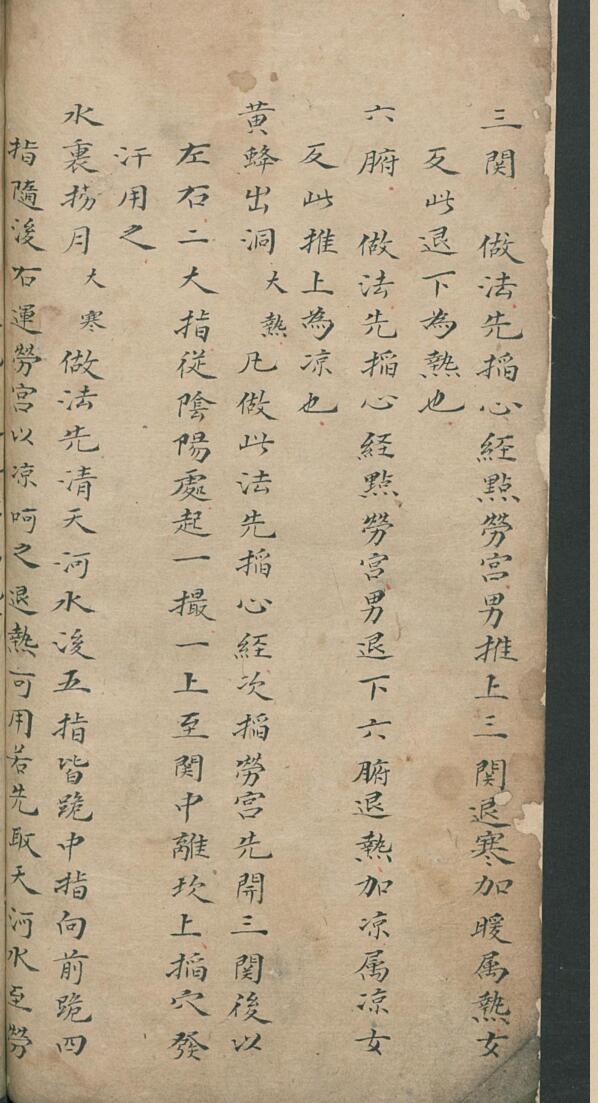 三関 做法先掐心経㸃勞宮男推上三関退寒加暖属熱女
反此退下為熱也
六腑 做法先掐心経㸃勞宮男退下六腑退熱加凉属凉女
反此推上為凉也
黄蜂出洞 大熱 凡做此法先掐心経次掐勞宮先開三関後以
左右二大指従陰陽處起一撮一上至関中離坎上掐穴發
汗用之
水裏撈月 大寒 做法先清天河水後五指皆跪中指向前跪四
指隨後右運勞宮以凉呵之退熱可用若先取天河水至勞